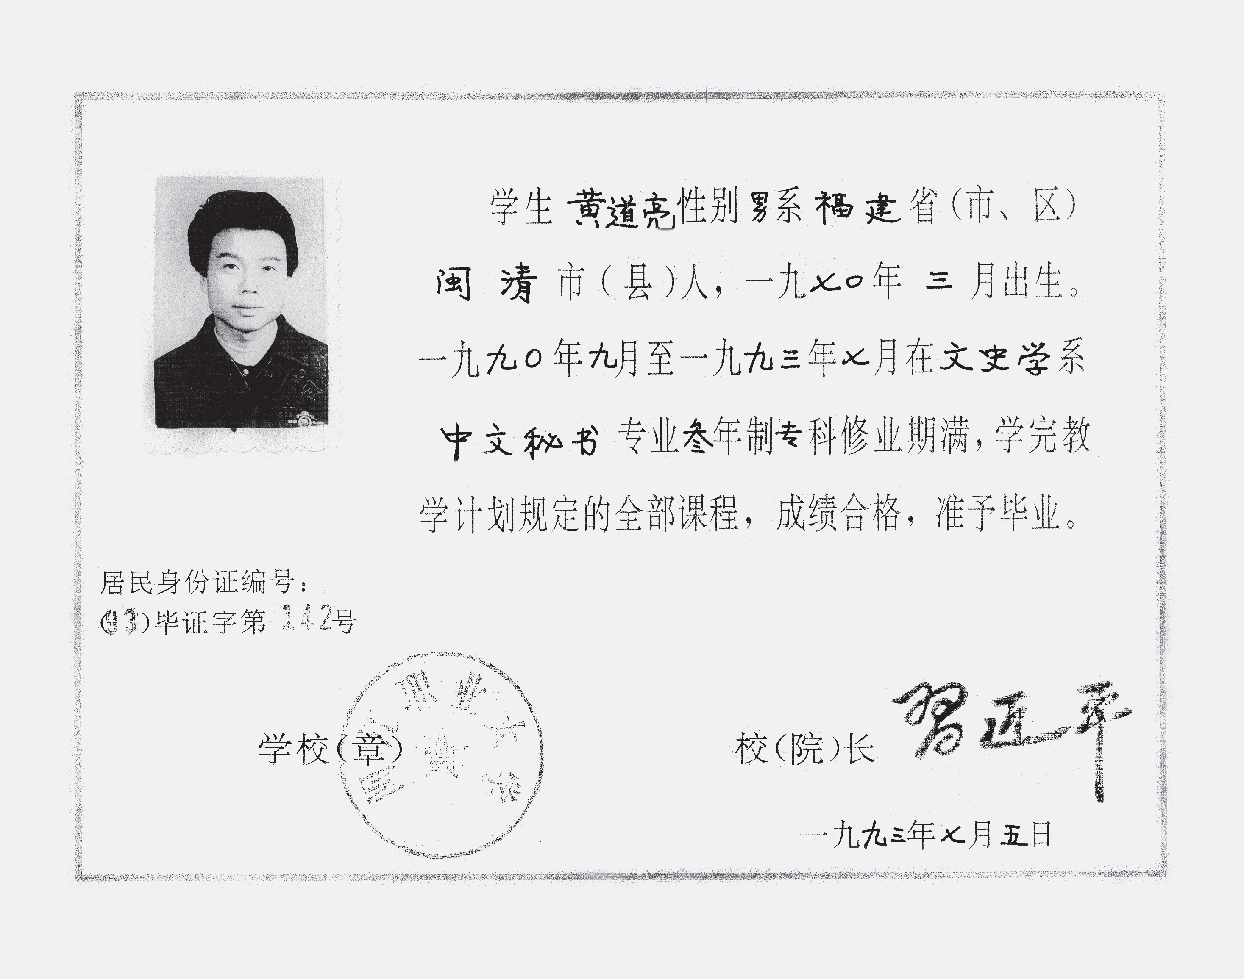 学生 黄道亮 性别 男 系 福建 省（市、区）
闽清 市（县）人，一九七〇年 三 月出生。
一九九〇年九月至一九九三年七月在文史学系
中文秘书 专业叁年制专科修业期满，学完教
学计划规定的全部课程，成绩合格，准予毕业。
居民身份证编号：
（93）毕证字第 142号
学校（章）
职业大
校（院）长 習近平
一九九三年七月五日